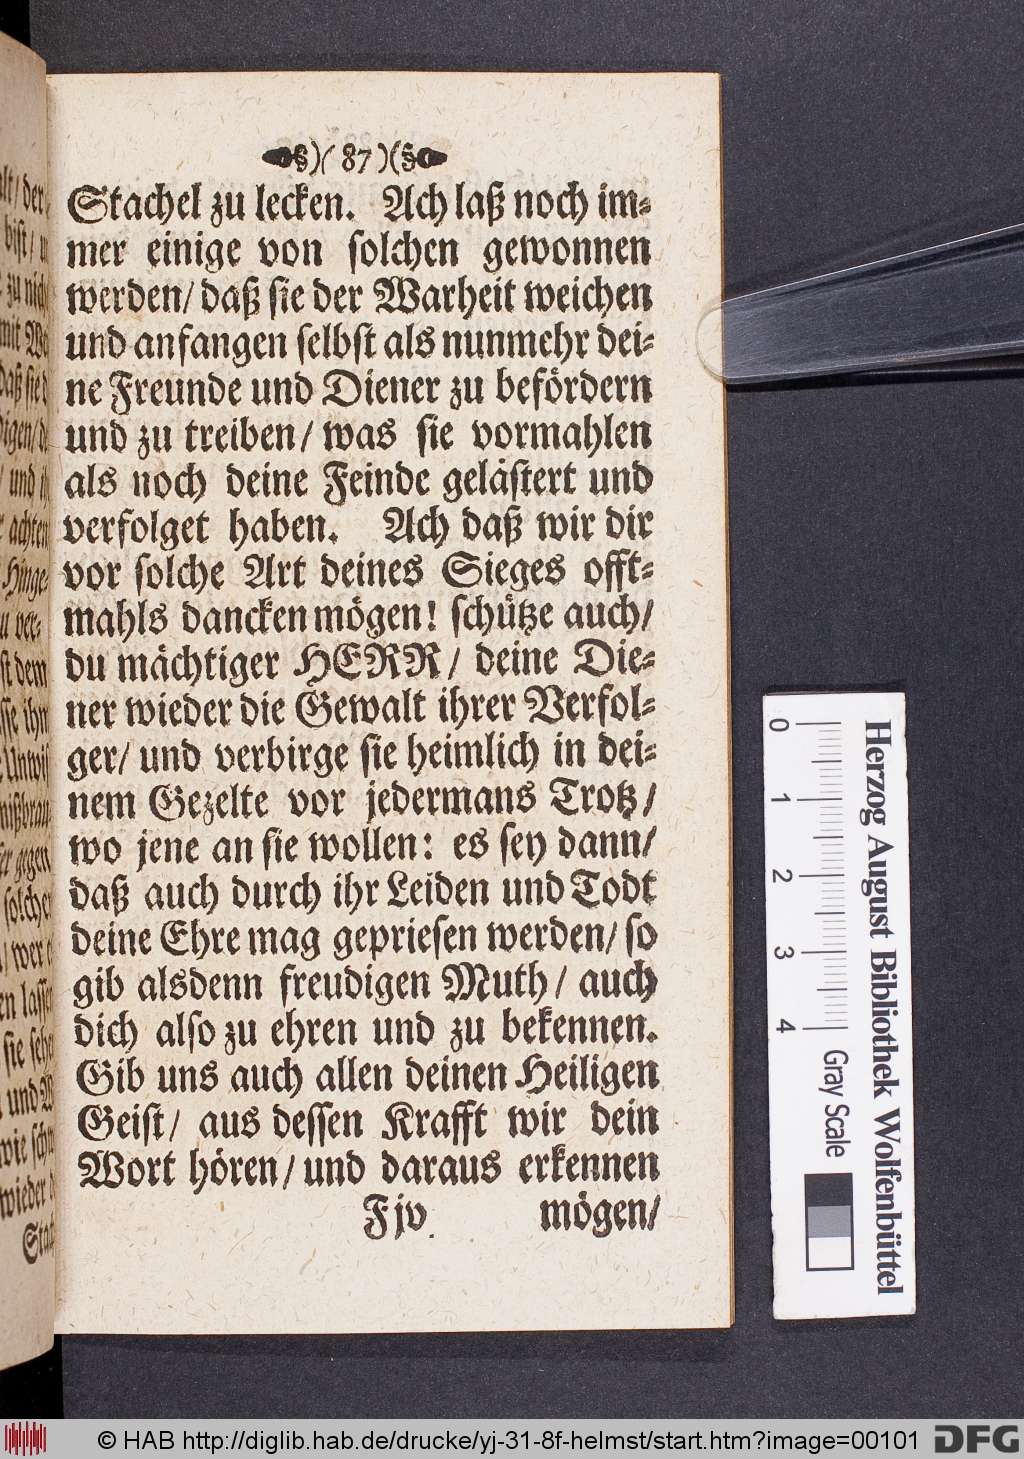 §)( 87 )(§
Stachel zu lecken. Ach laß noch im-
mer einige von solchen gewonnen
werden/ daß sie der Warheit weichen
und anfangen selbst als nunmehr dei-
ne Freunde und Diener zu befördern
und zu treiben/ was sie vormahlen
als noch deine Feinde gelästert und
verfolget haben. Ach daß wir dir
vor solche Art deines Sieges offt-
mahls dancken mögen! schütze auch/
du mächtiger HERR/ deine Die-
ner wieder die Gewalt ihrer Verfol-
ger/ und verbirge sie heimlich in dei-
nem Gezelte vor jedermans Trotz/
wo jene an sie wollen: es sey dann/
daß auch durch ihr Leiden und Todt
deine Ehre mag gepriesen werden/ so
gib alsdenn freudigen Muth/ auch
dich also zu ehren und zu bekennen.
Gib uns auch allen deinen Heiligen
Geist/ aus dessen Krafft wir dein
Wort hören/ und daraus erkennen
F jv mögen/
0 1 2 3 4
Gray Scale
Herzog August Bibliothek Wolfenbüttel
© HAB http://diglib.hab.de/drucke/yj-31-8f-helmst/start.htm?image=00101
DFG